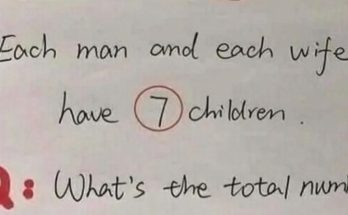 Each man and each wife
have 7 children.
Q: What's the total